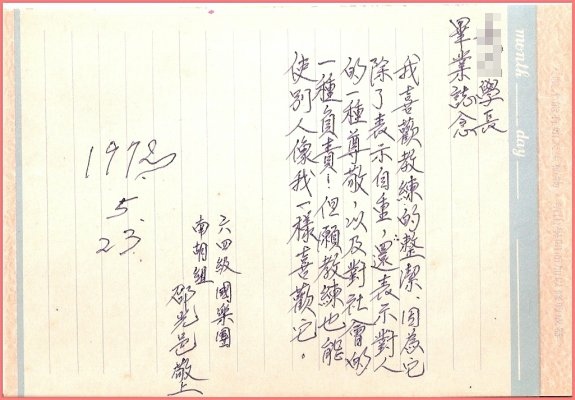 學長
畢業誌念
我喜歡教練的整潔、因為它
除了表示自重，還表示對人
的一種尊敬，以及對社會的
一種負責！但願教練也能
使別人像我一樣喜歡它。
六四級國樂團
南胡組
邵光邑敬上
1972
5.
23.
month
day